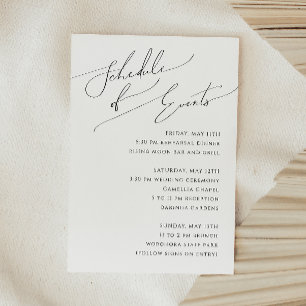 Schedule
of Events
FRIDAY, MAY 11TH
5:30 PM REHEARSAL DINNER
RISING MOON BAR AND GRILL
SATURDAY, MAY 12TH
3:30 PM WEDDING CEREMONY
CAMELLIA CHAPEL
5 TO 11 PM RECEPTION
GARDENS
SUNDAY, MAY 13TH
11 TO 2 PM BRUNCH
STATE PARK
(FOLLOW SIGNS ON ENTRY)